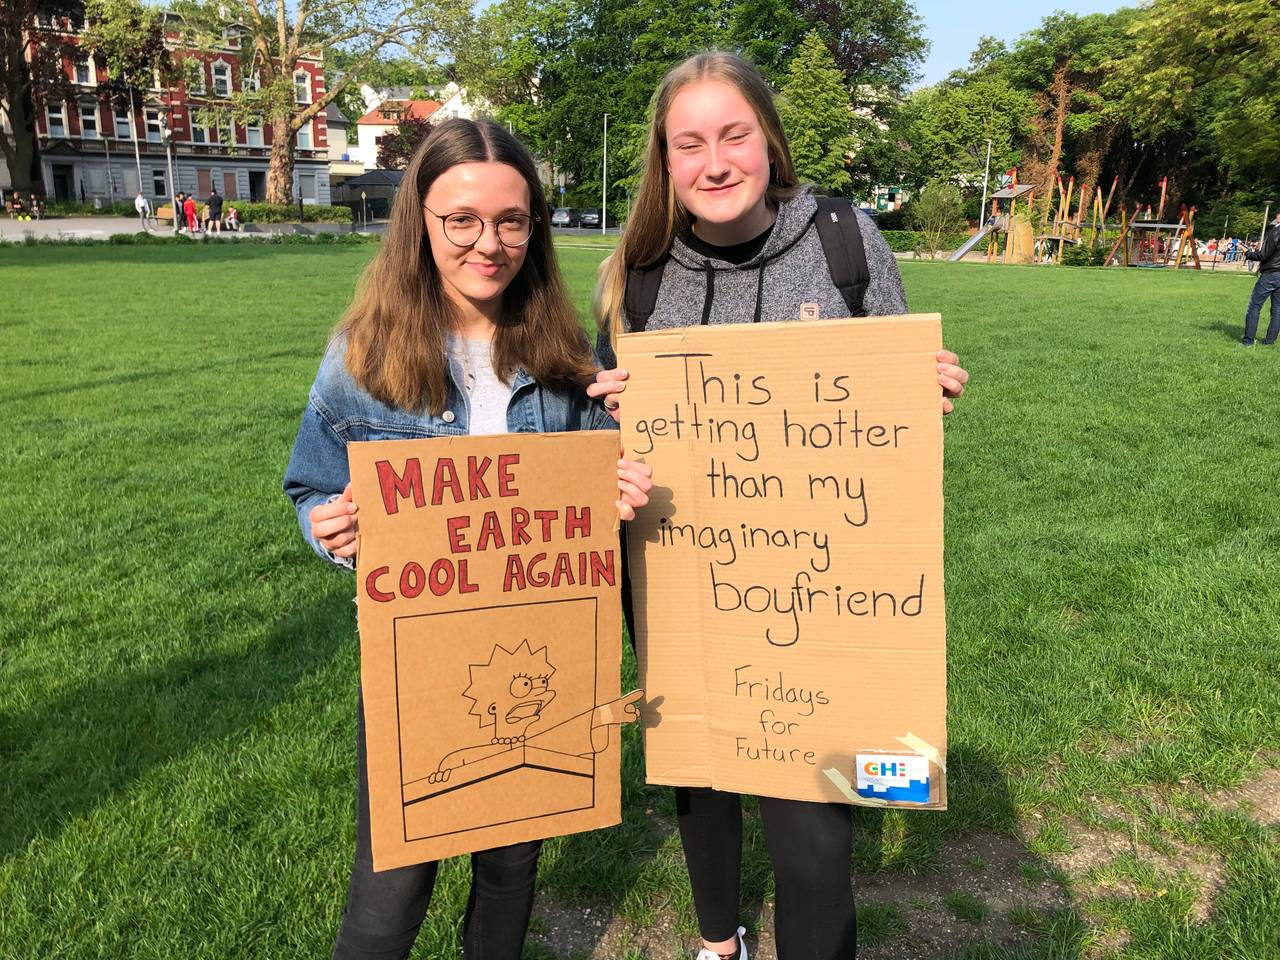 MAKE
EARTH
COOL AGAIN
This is
getting hotter
than my
imaginary
boyfriend
Fridays
for
Future
GHE